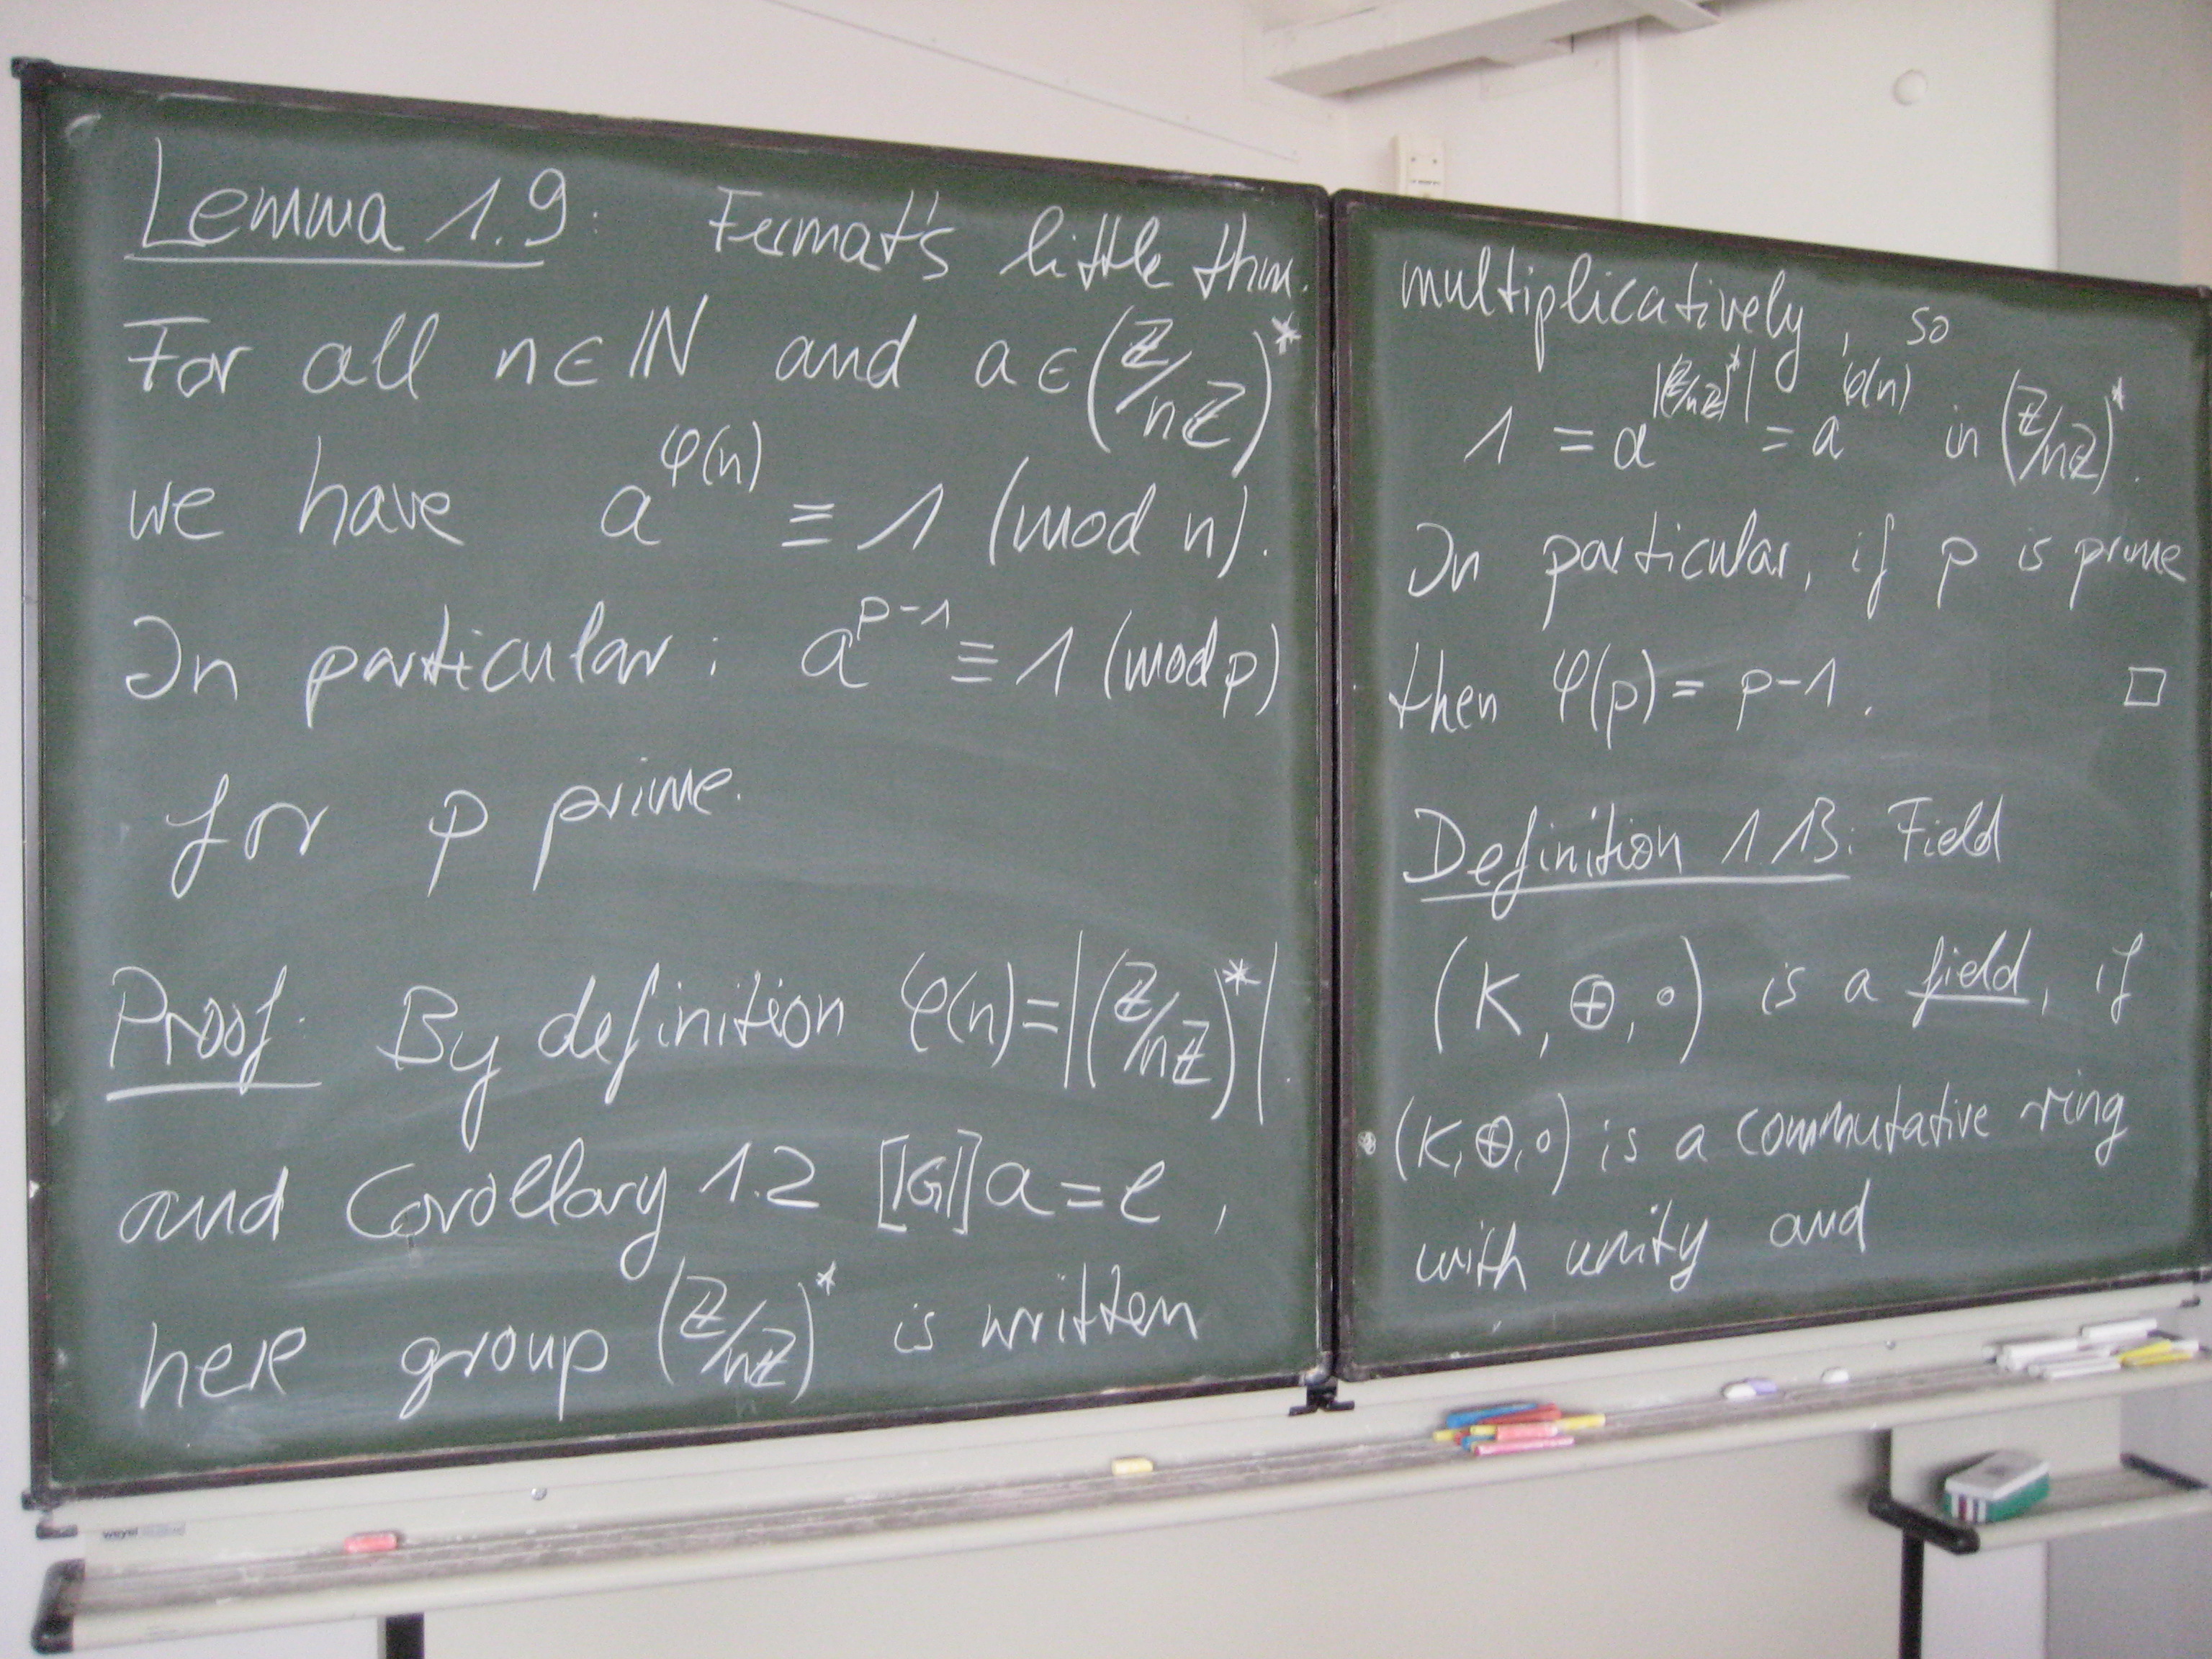 Lemma 1.9: Fermat's little thm.
For all n ∈ ℕ and a ∈ (ℤ/nℤ)*
we have a^φ(n) ≡ 1 (mod n).
In particular: a^(p-1) ≡ 1 (mod p)
for p prime.
Proof: By definition φ(n) = |(ℤ/nℤ)*|.
and Corollary 1.2 [|G|]a = e,
here group (ℤ/nℤ)* is written
multiplicatively, so
1 = a^|(ℤ/nℤ)*| = a^φ(n) in (ℤ/nℤ)*.
In particular, if p is prime
then φ(p) = p-1. □
Definition 1.13: Field
(K, ⊕, ∘) is a field, if
(K, ⊕, ∘) is a commutative ring
with unity and